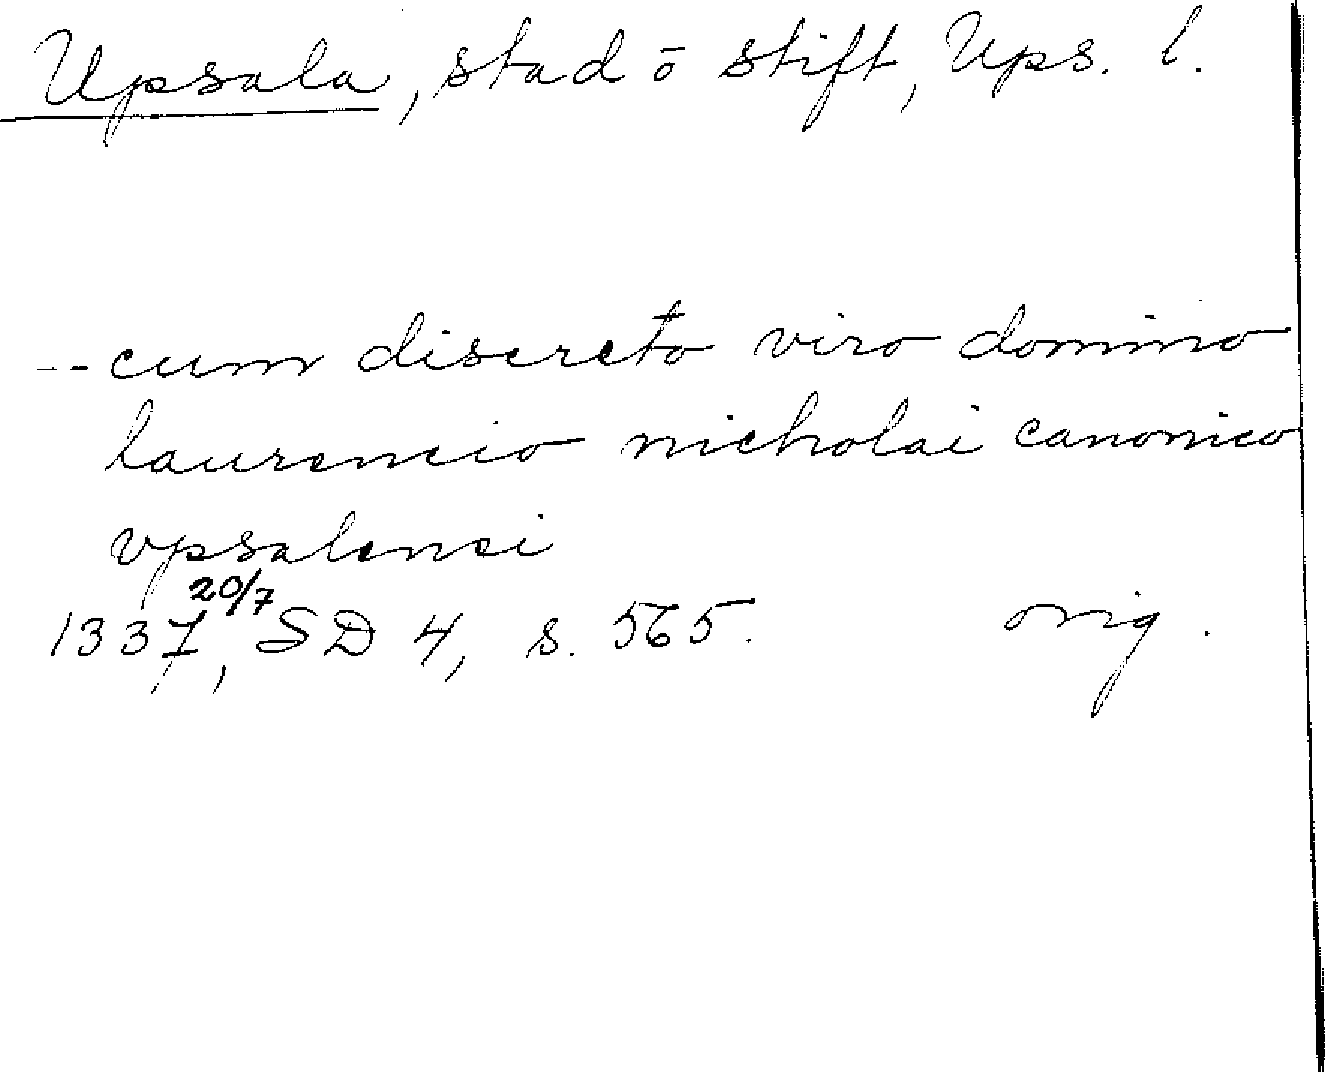 Upsala, stad ō stift, Ups. l.
-- cum discreto viro domino
laurencio nicholai canonico
vpsalensi
1337 20/7, SD 4, s. 565. orig.